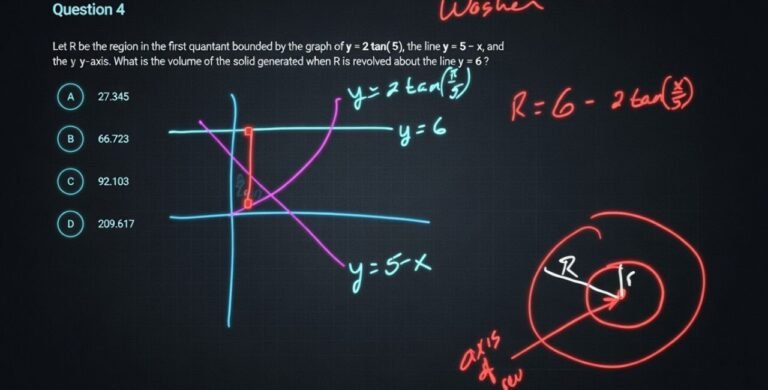 Question 4
Washer
Let R be the region in the first quantant bounded by the graph of y = 2 tan( 5), the line y = 5 - x, and
the y y-axis. What is the volume of the solid generated when R is revolved about the line y = 6 ?
A 27.345
B 66.723
C 92.103
D 209.617
y = 2 tan(x/5)
y = 6
y = 5-x
R = 6 - 2 tan(x/5)
R
r
axis
of
rev